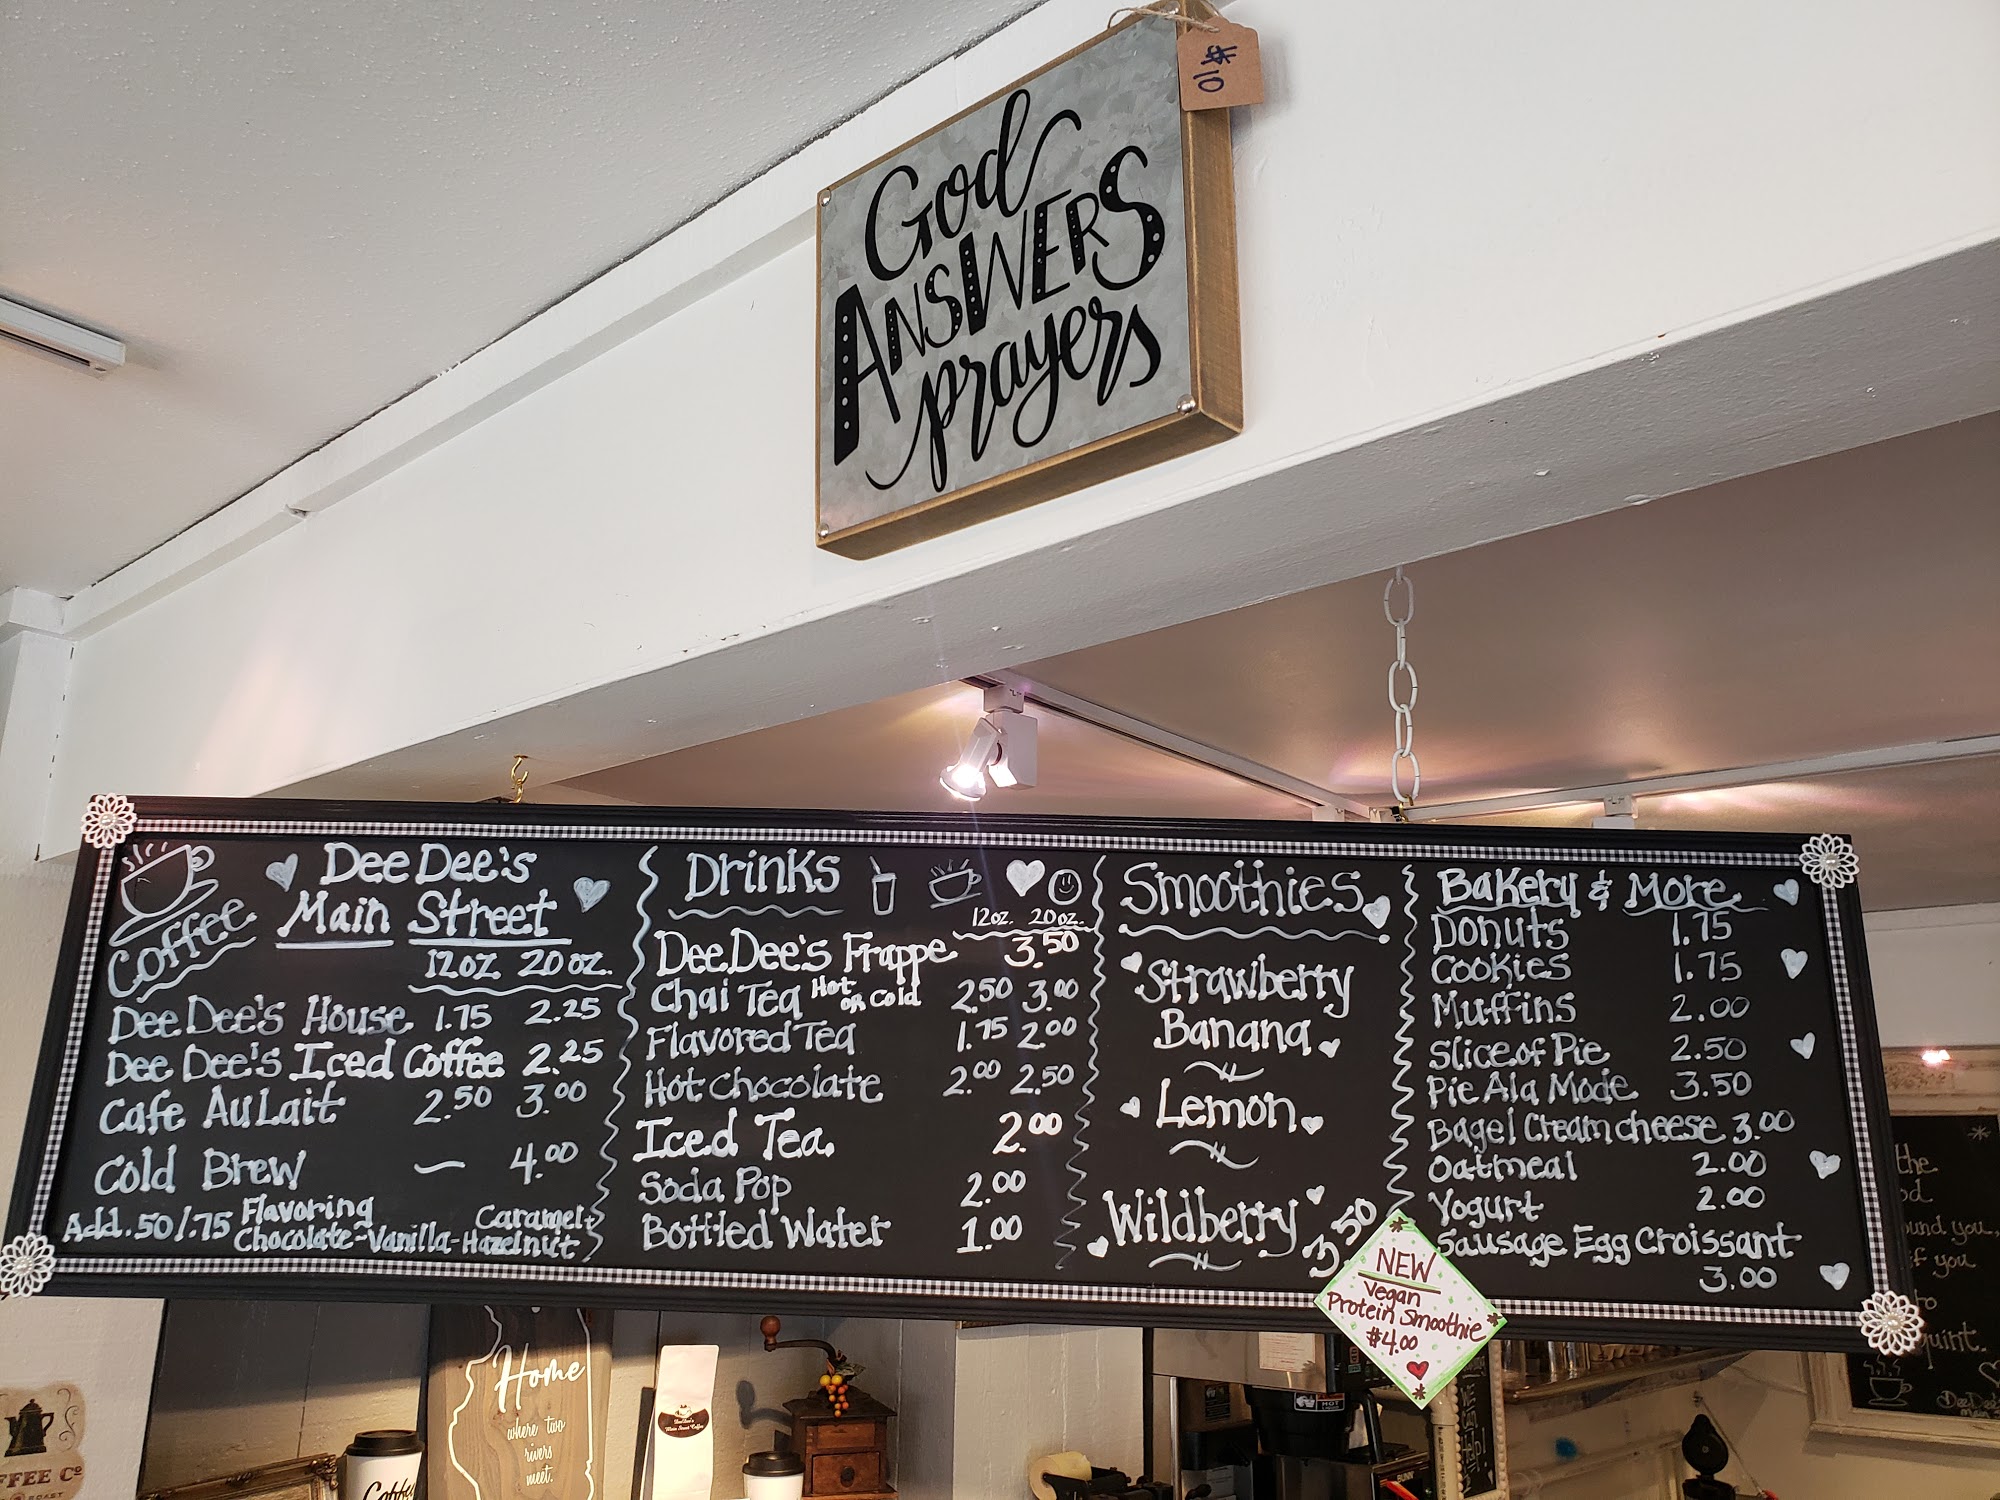 $10
God
ANSWERS
prayers
Coffee
Dee Dee's
Main Street
12oz. 20oz.
Dee Dee's House 1.75 2.25
Dee Dee's Iced Coffee 2.25
Cafe Au Lait 2.50 3.00
Cold Brew — 4.00
Add .50/.75 Flavoring Caramel
Chocolate-Vanilla-Hazelnut
Drinks
12oz. 20oz.
Dee Dee's Frappe 3.50
Chai Tea Hot or Cold 2.50 3.00
Flavored Tea 1.75 2.00
Hot Chocolate 2.00 2.50
Iced Tea 2.00
Soda Pop 2.00
Bottled Water 1.00
Smoothies
Strawberry
Banana
Lemon
Wildberry 3.50
Bakery & More
Donuts 1.75
Cookies 1.75
Muffins 2.00
Slice of Pie 2.50
Pie Ala Mode 3.50
Bagel Cream cheese 3.00
Oatmeal 2.00
Yogurt 2.00
Sausage Egg Croissant
3.00
NEW
Vegan
Protein Smoothie
$4.00
Home
where two
rivers
meet.
DeeDee's
Main Street Coffee
Coffee
FFEE CO
ROAST
HOT
BUNN
the
und you,
if you
to
quint.